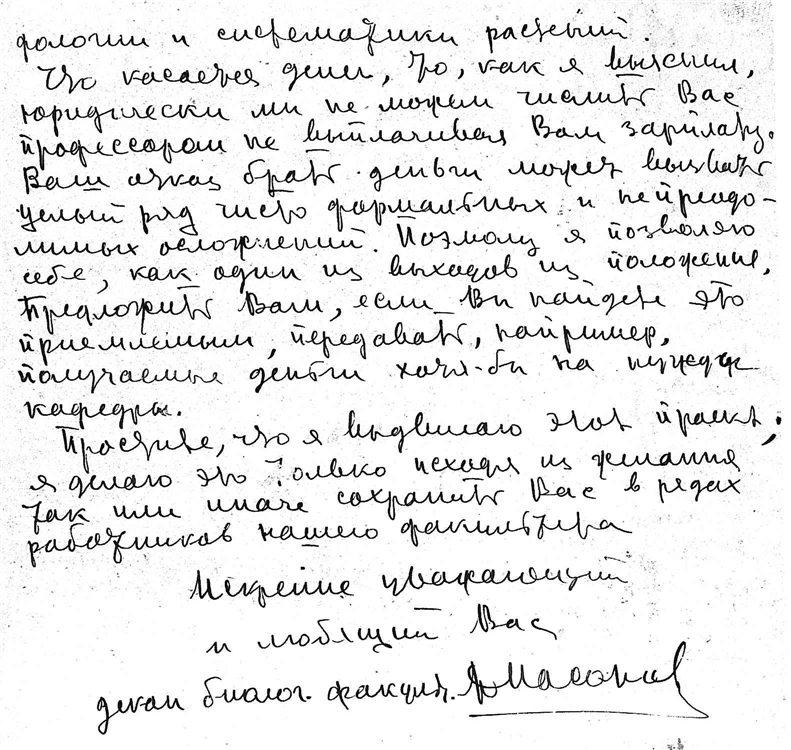 фологии и систематики растений.
Что касается денег, то, как я выяснил,
юридически мы не можем числить Вас
профессором не выплачивая Вам зарплату.
Ваш отказ брать деньги может вызвать
целый ряд чисто формальных и непреодо-
лимых осложнений. Поэтому я позволяю
себе, как один из выходов из положения,
предложить Вам, если Вы найдете это
приемлемым, передавать, например,
получаемые деньги хотя-бы на нужды
кафедры.
Простите, что я выдвигаю этот проект;
я делаю это только исходя из желания
так или иначе сохранить Вас в рядах
работников нашего факультета
Искренне уважающий
и любящий Вас
декан биолог. факульт.